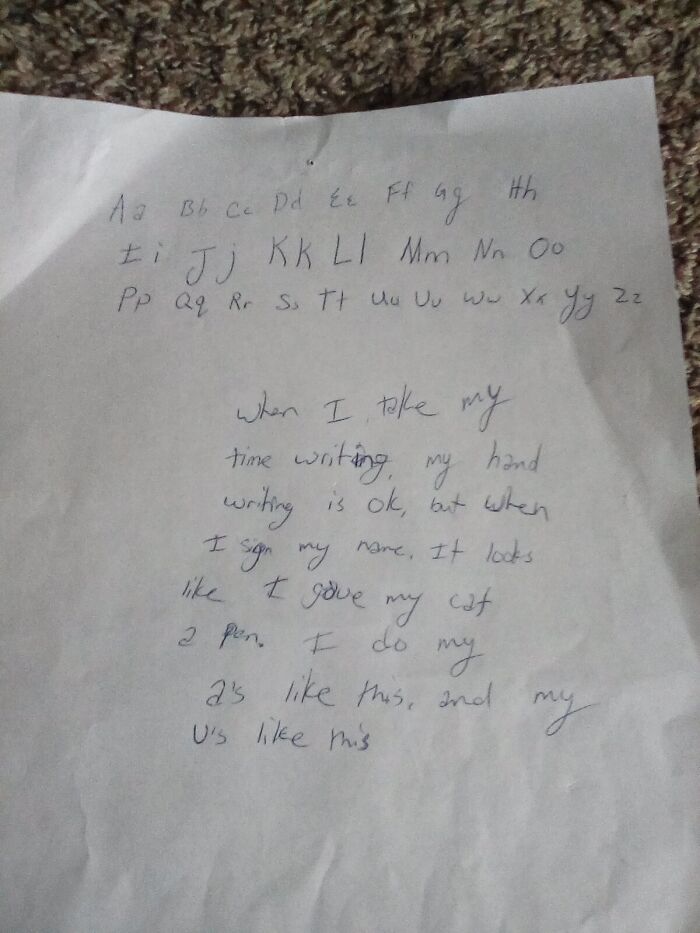 Aa Bb Cc Dd Ee Ff Gg Hh
Ii Jj Kk Ll Mm Nn Oo
Pp Qq Rr Ss Tt Uu Vv Ww Xx Yy Zz
when I take my
time writing, my hand
writing is ok, but when
I sign my name. It looks
like I gave my cat
a pen. I do my
a's like this, and my
u's like this